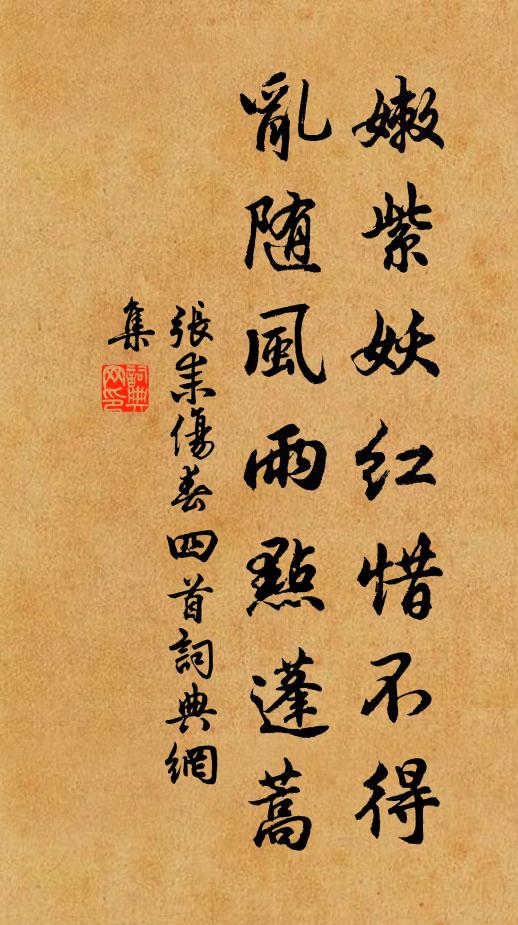 嫩紫妖红惜不得
亂随風雨點蓬蒿
張耒傷春四首詞典網
集
詞典
网印